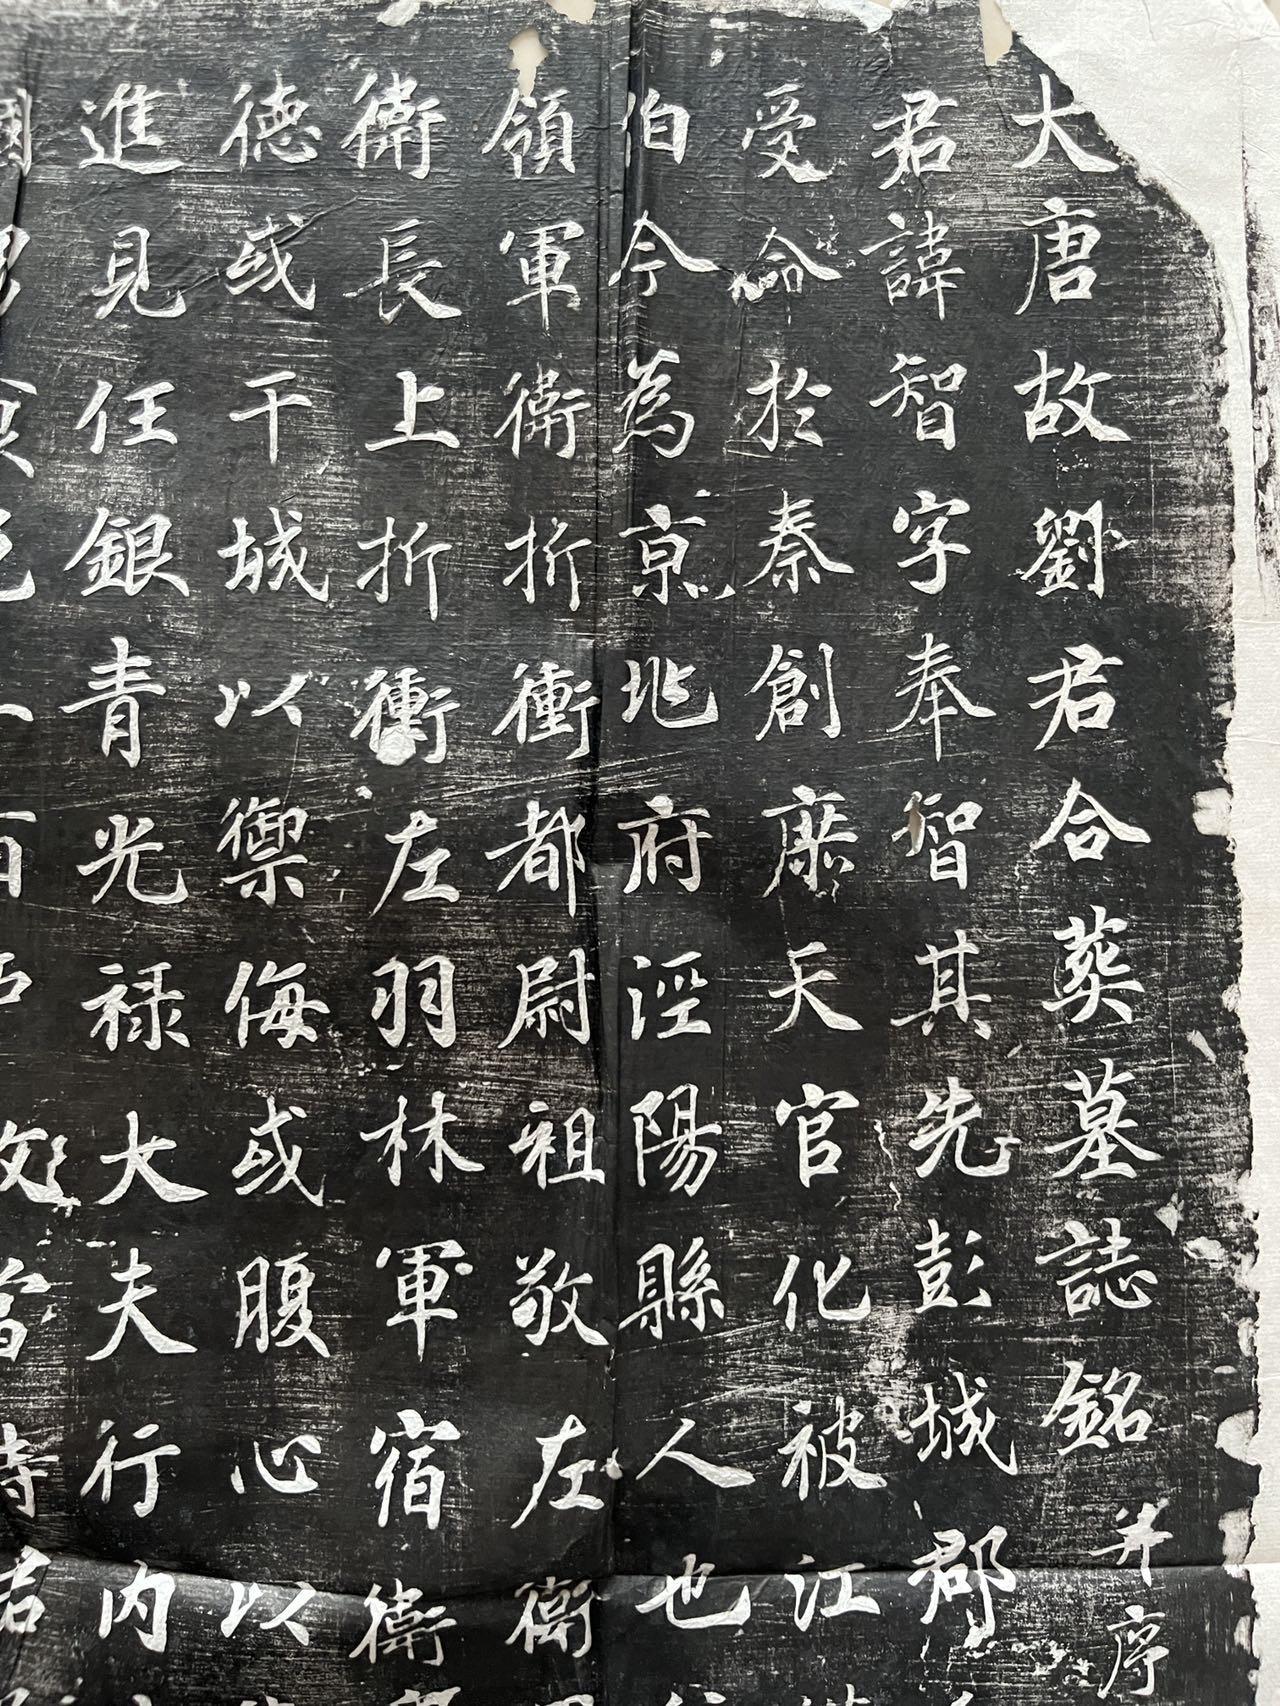 大唐故劉君合葬墓誌銘并序
君諱智字奉智其先彭城郡
受命於秦創廉天官化被江
伯今為京兆府涇陽縣人也
領軍衛折衝都尉祖敬左衛
衛長上折衝左羽林軍宿衛
德或干城以禦侮或腹心以
進見任銀青光祿大夫行內